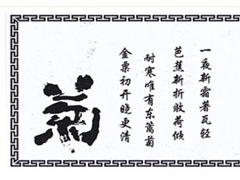 一夜新霜著瓦轻
芭蕉新折败荷倾
耐寒唯有东篱菊
金粟初开晓更清